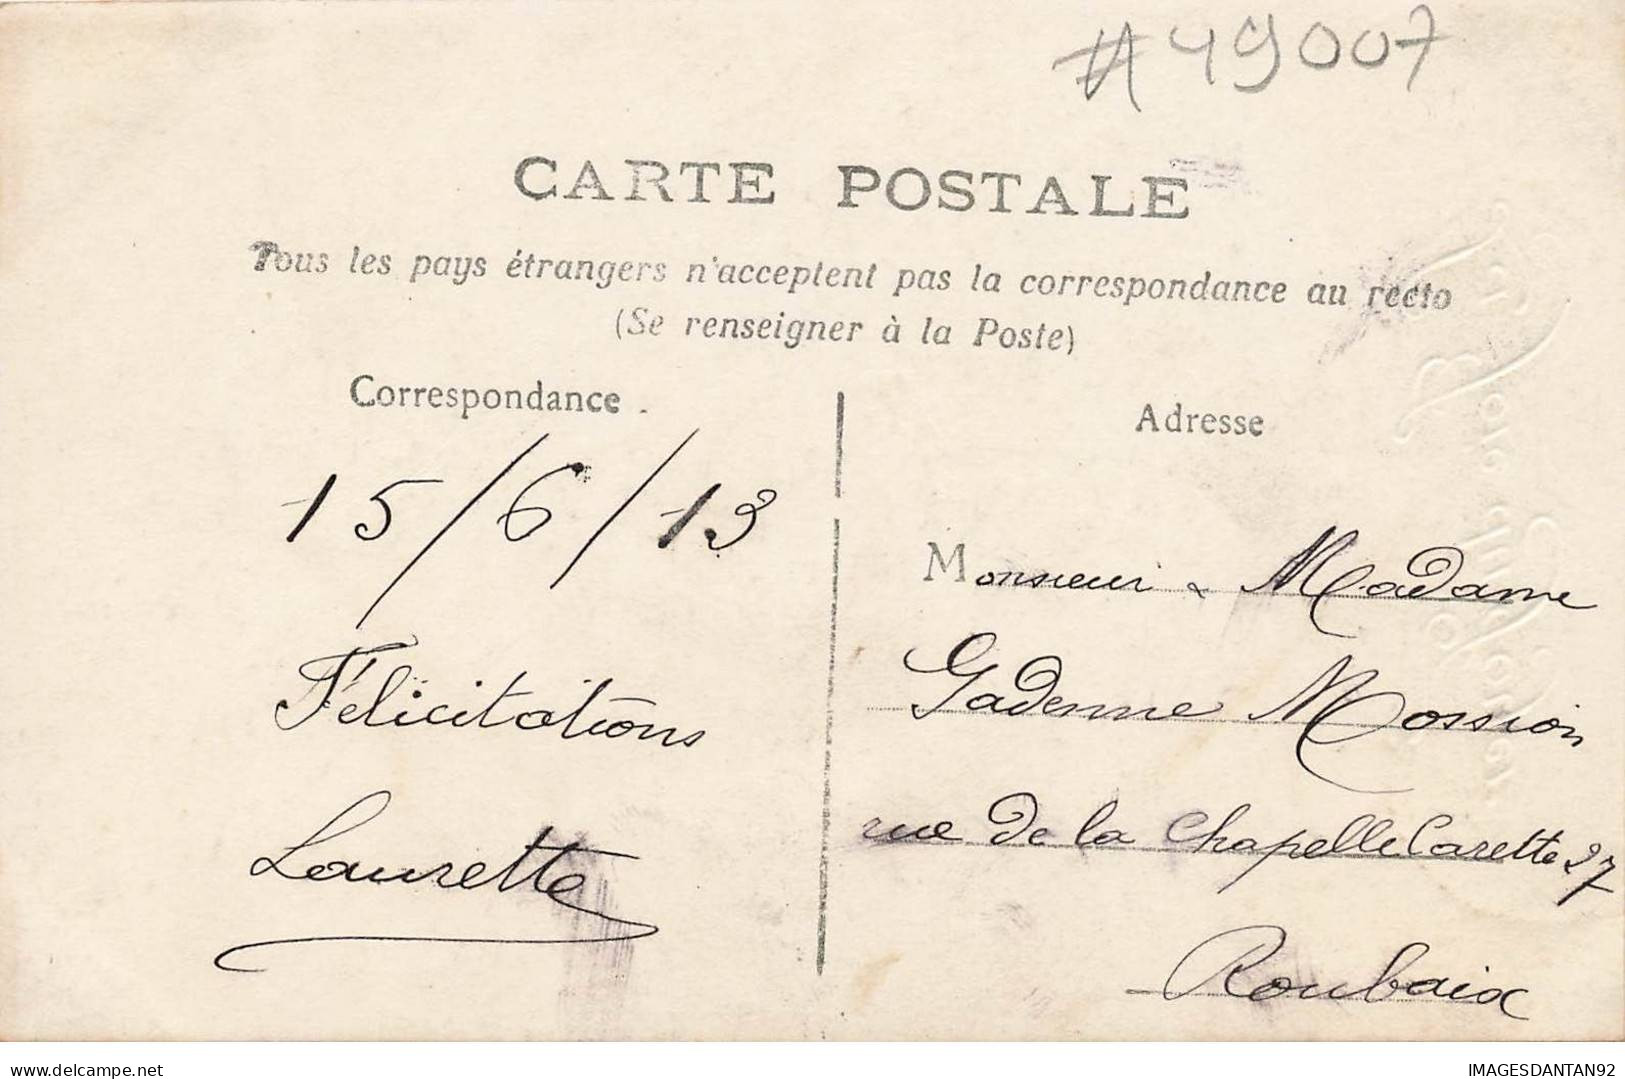 #49007
CARTE POSTALE
Tous les pays étrangers n'acceptent pas la correspondance au recto
(Se renseigner à la Poste)
Correspondance
15/6/13
Félicitations
Laurette
Adresse
Monsieur & Madame
Gadenne Mossion
rue de la Chapelle Carette 27
Roubaix
IMAGESDANTAN92